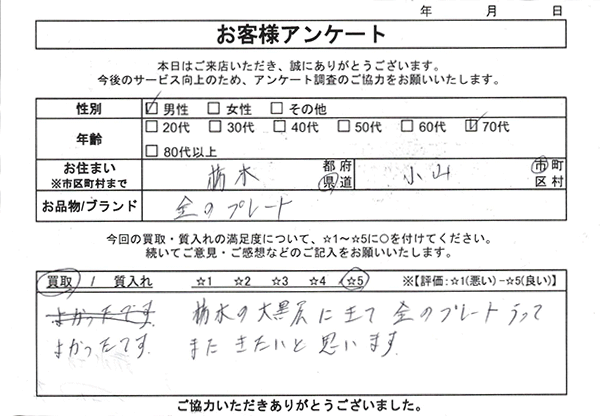 年 月 日
お客様アンケート
本日はご来店いただき、誠にありがとうございます。
今後のサービス向上のため、アンケート調査のご協力をお願いいたします。
性別 ☑ 男性 □ 女性 □ その他
年齢 □ 20代 □ 30代 □ 40代 □ 50代 □ 60代 ☑ 70代
□ 80代以上
お住まい ※市区町村まで 栃木 都府県道 小山 市町区村
お品物/ブランド 金のプレート
今回の買取・質入れの満足度について、☆1～☆5に○を付けてください。
続いてご意見・ご感想などのご記入をお願いいたします。
買取 / 質入れ ☆1 ・ ☆2 ・ ☆3 ・ ☆4 ・ ☆5 ※【評価:☆1(悪い)-☆5(良い)】
よかったです 栃木の大黒屋に来て 金のプレートうって
よかったです。 またきたいと思います。
ご協力いただきありがとうございました。